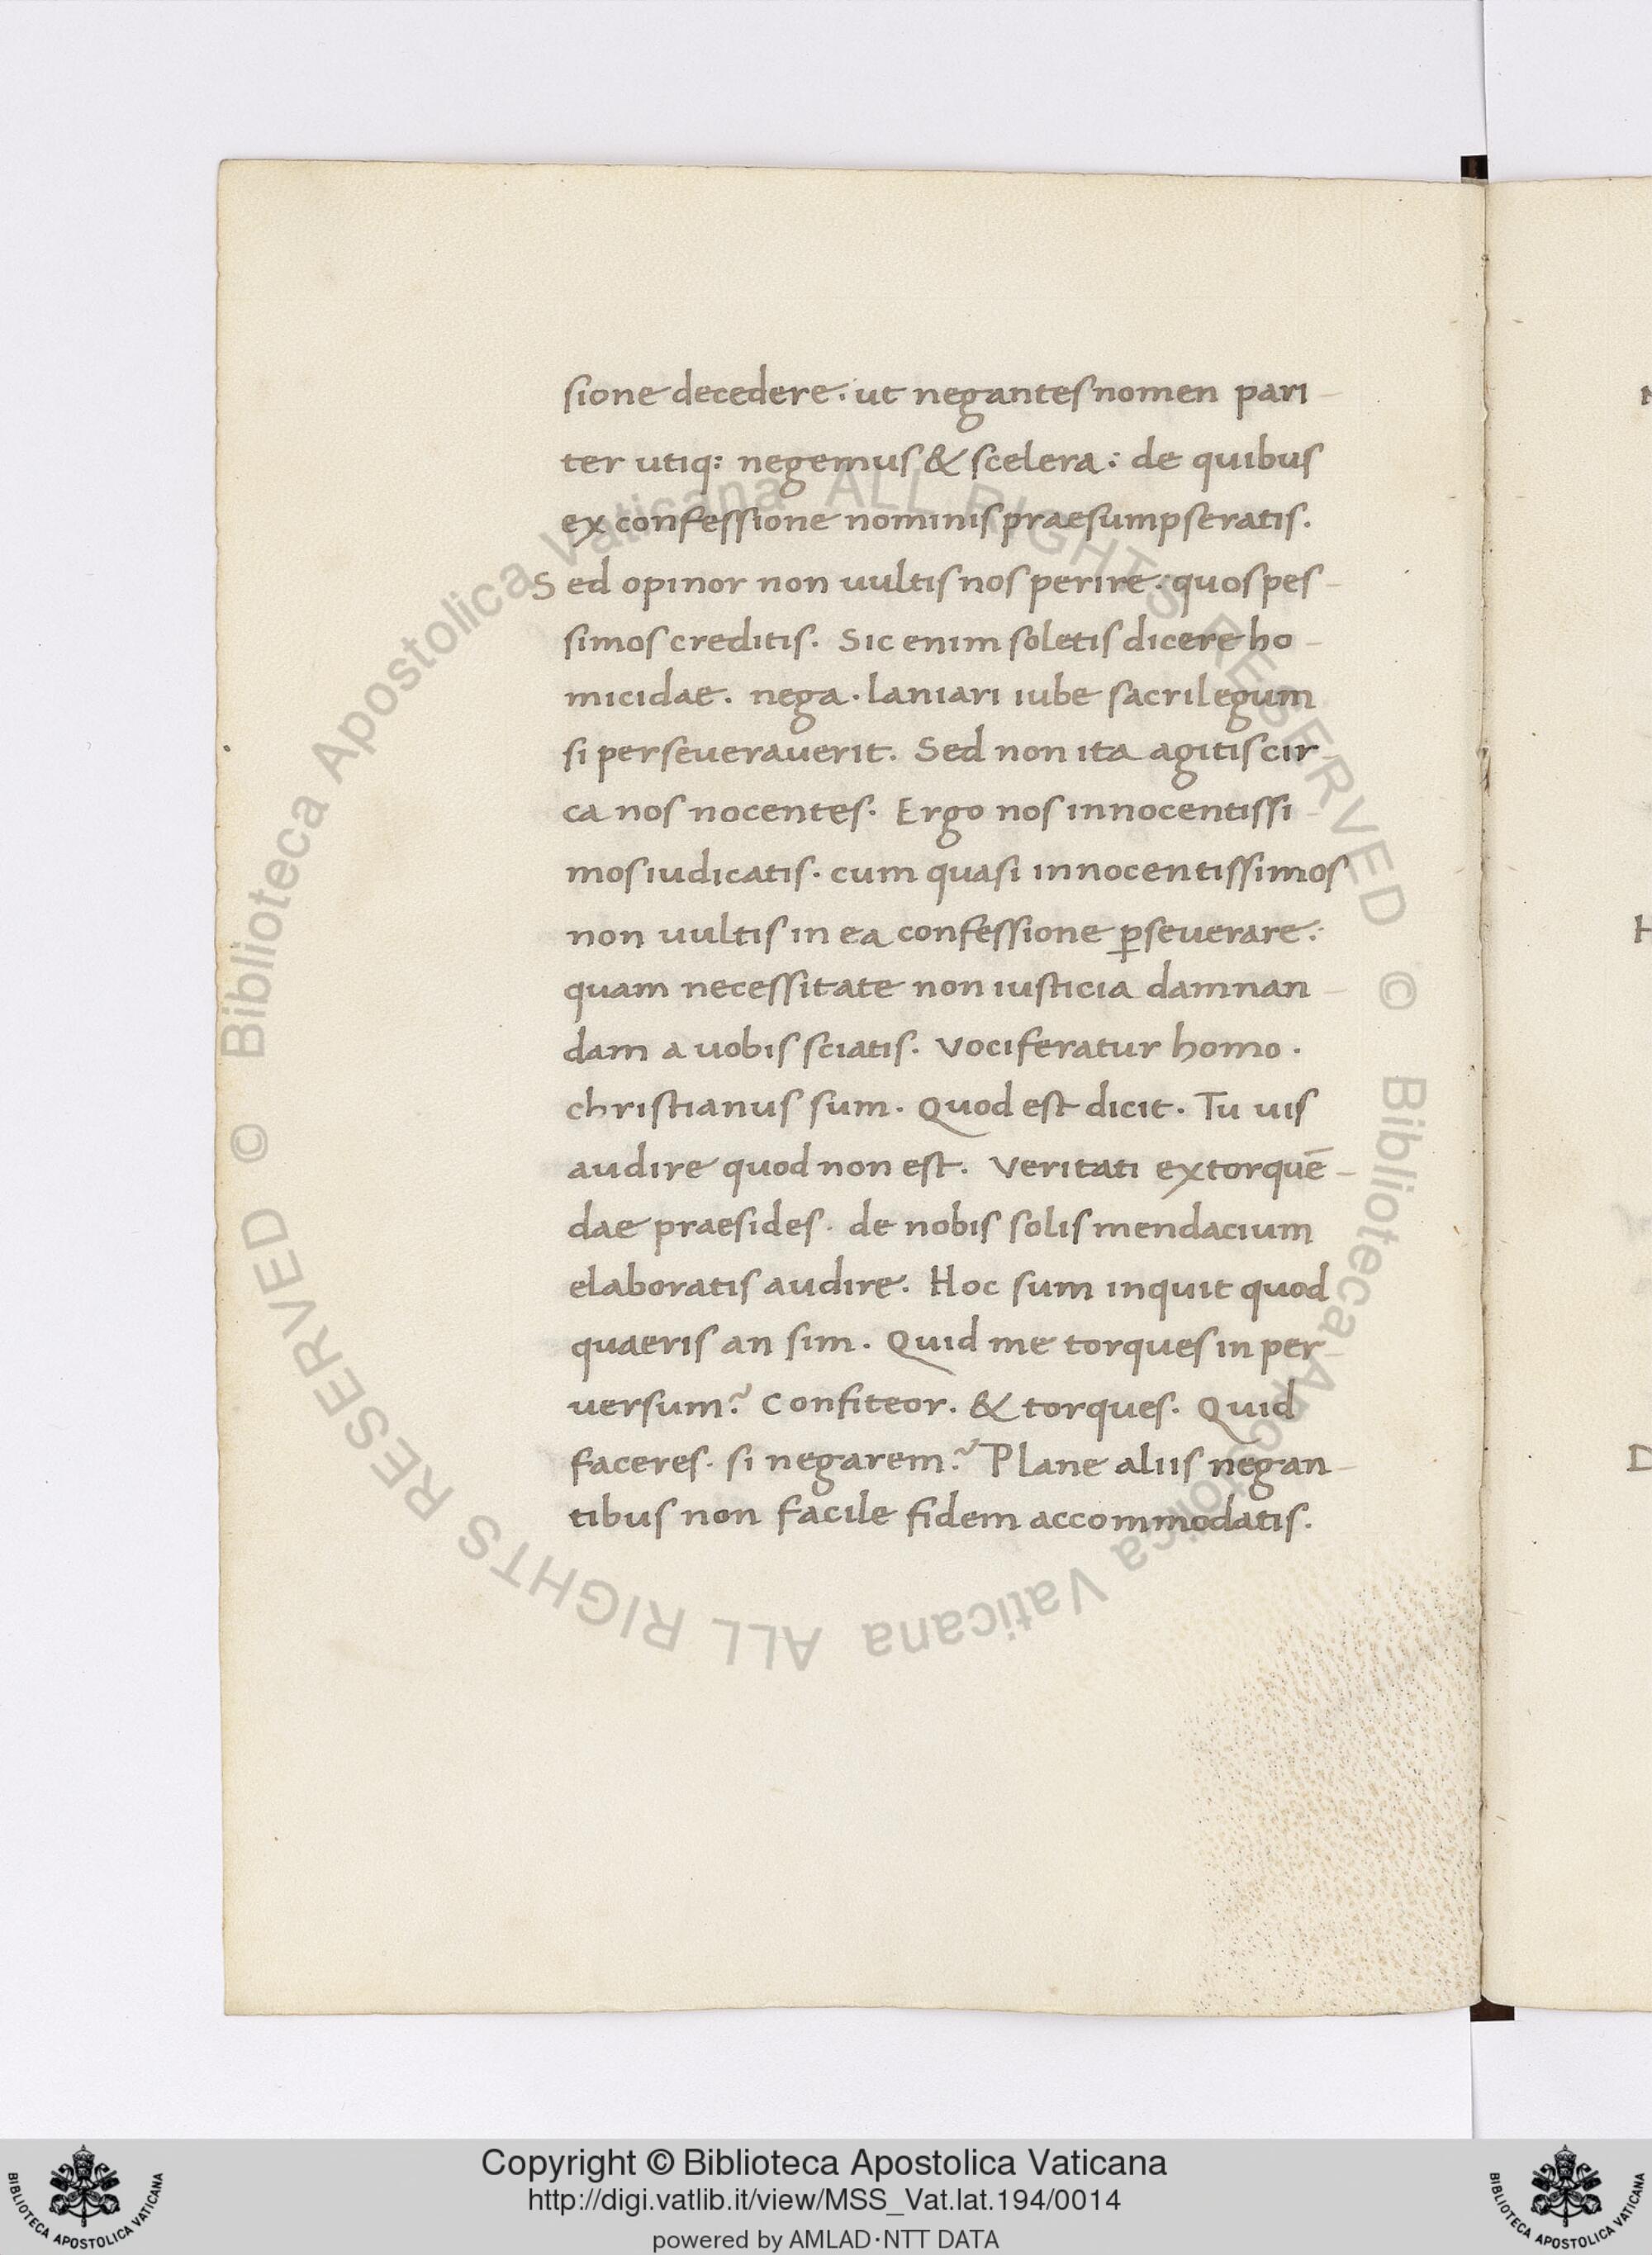 sione decedere: ut negantes nomen pari-
ter utiq: negemus & scelera: de quibus
ex confessione nominis praesumpseratis.
Sed opinor non uultis nos perire: quos pes-
simos creditis. Sic enim soletis dicere ho-
micidae. nega. laniari iube sacrilegum
si perseuerauerit. Sed non ita agitis cir-
ca nos nocentes. Ergo nos innocentissi-
mos iudicatis. cum quasi innocentissimos
non uultis in ea confessione ꝑseuerare:
quam necessitate non iusticia damnan-
dam a uobis sciatis. Vociferatur homo.
christianus sum. Quod est dicit. Tu uis
audire quod non est. Veritati extorquē-
dae praesides. de nobis solis mendacium
elaboratis audire. Hoc sum inquit quod
quaeris an sim. Quid me torques in per-
uersum? Confiteor. & torques. Quid
faceres. si negarem? Plane aliis negan-
tibus non facile fidem accommodatis.
© Biblioteca Apostolica Vaticana ALL RIGHTS RESERVED
© Biblioteca Apostolica Vaticana ALL RIGHTS RESERVED
H
D
Copyright © Biblioteca Apostolica Vaticana
http://digi.vatlib.it/view/MSS_Vat.lat.194/0014
powered by AMLAD·NTT DATA
BIBLIOTECA APOSTOLICA VATICANA
BIBLIOTECA APOSTOLICA VATICANA